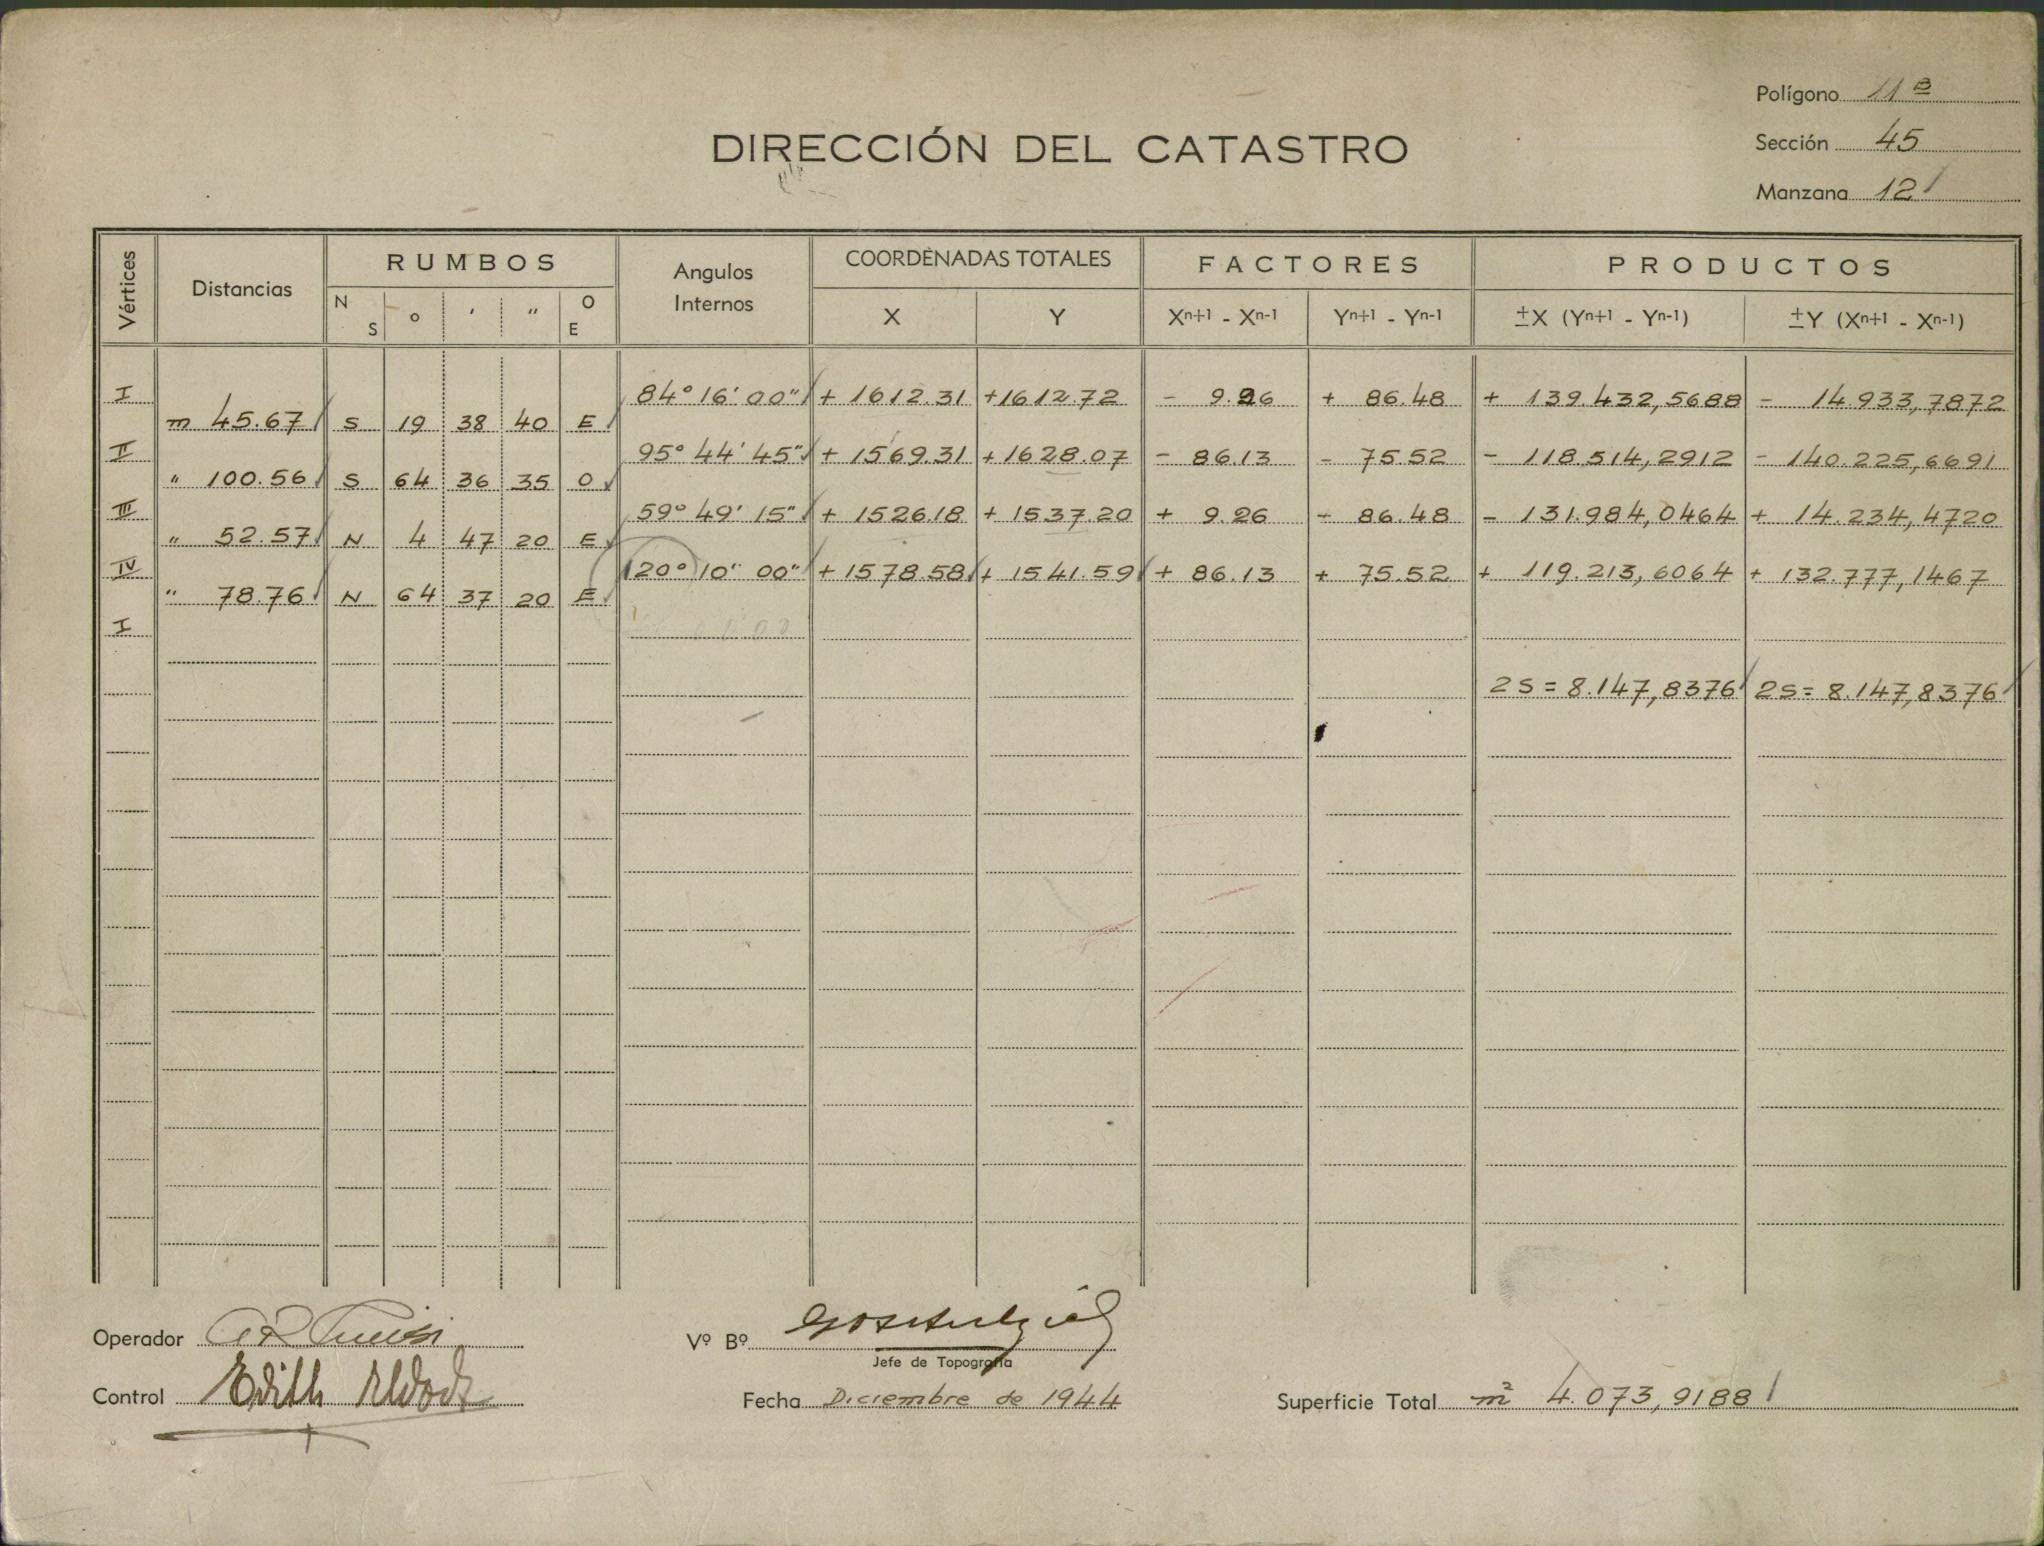 Polígono 11 B
Sección 45
Manzana 12
DIRECCIÓN DEL CATASTRO
Vértices Distancias RUMBOS Angulos Internos COORDENADAS TOTALES FACTORES PRODUCTOS
N S ° ' " O E X Y Xn+1 - Xn-1 Yn+1 - Yn-1 ±X (Yn+1 - Yn-1) ±Y (Xn+1 - Xn-1)
I 84° 16' 00" + 1612.31 +1612.72 - 9.26 + 86.48 + 139.432,5688 - 14.933,7872
m 45.67 S 19 38 40 E
II 95° 44' 45" + 1569.31 +1628.07 - 86.13 - 75.52 - 118.514,2912 - 140.225,6691
" 100.56 S 64 36 35 O
III 59° 49' 15" + 1526.18 + 1537.20 + 9.26 - 86.48 - 131.984,0464 + 14.234,4720
" 52.57 N 4 47 20 E
IV 120° 10" 00" + 1578.58 + 1541.59 + 86.13 + 75.52 + 119.213,6064 + 132.777,1467
" 78.76 N 64 37 20 E
I
2S = 8.147,8376 2S = 8.147,8376
Operador
Vº Bº
Jefe de Topografía
Control Edith
Fecha Diciembre de 1944
Superficie Total m² 4.073,9188